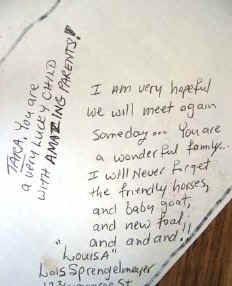 TARA, You are
a very Lucky CHILD
WITH AMAZING PARENTS!
I AM very hopeful
we will meet again
Someday... You are
a wonderful family...
I will Never forget
the friendly horses,
and baby goat,
and new foal,
and and and!!
"LouisA"
Lois Sprengelmeyer